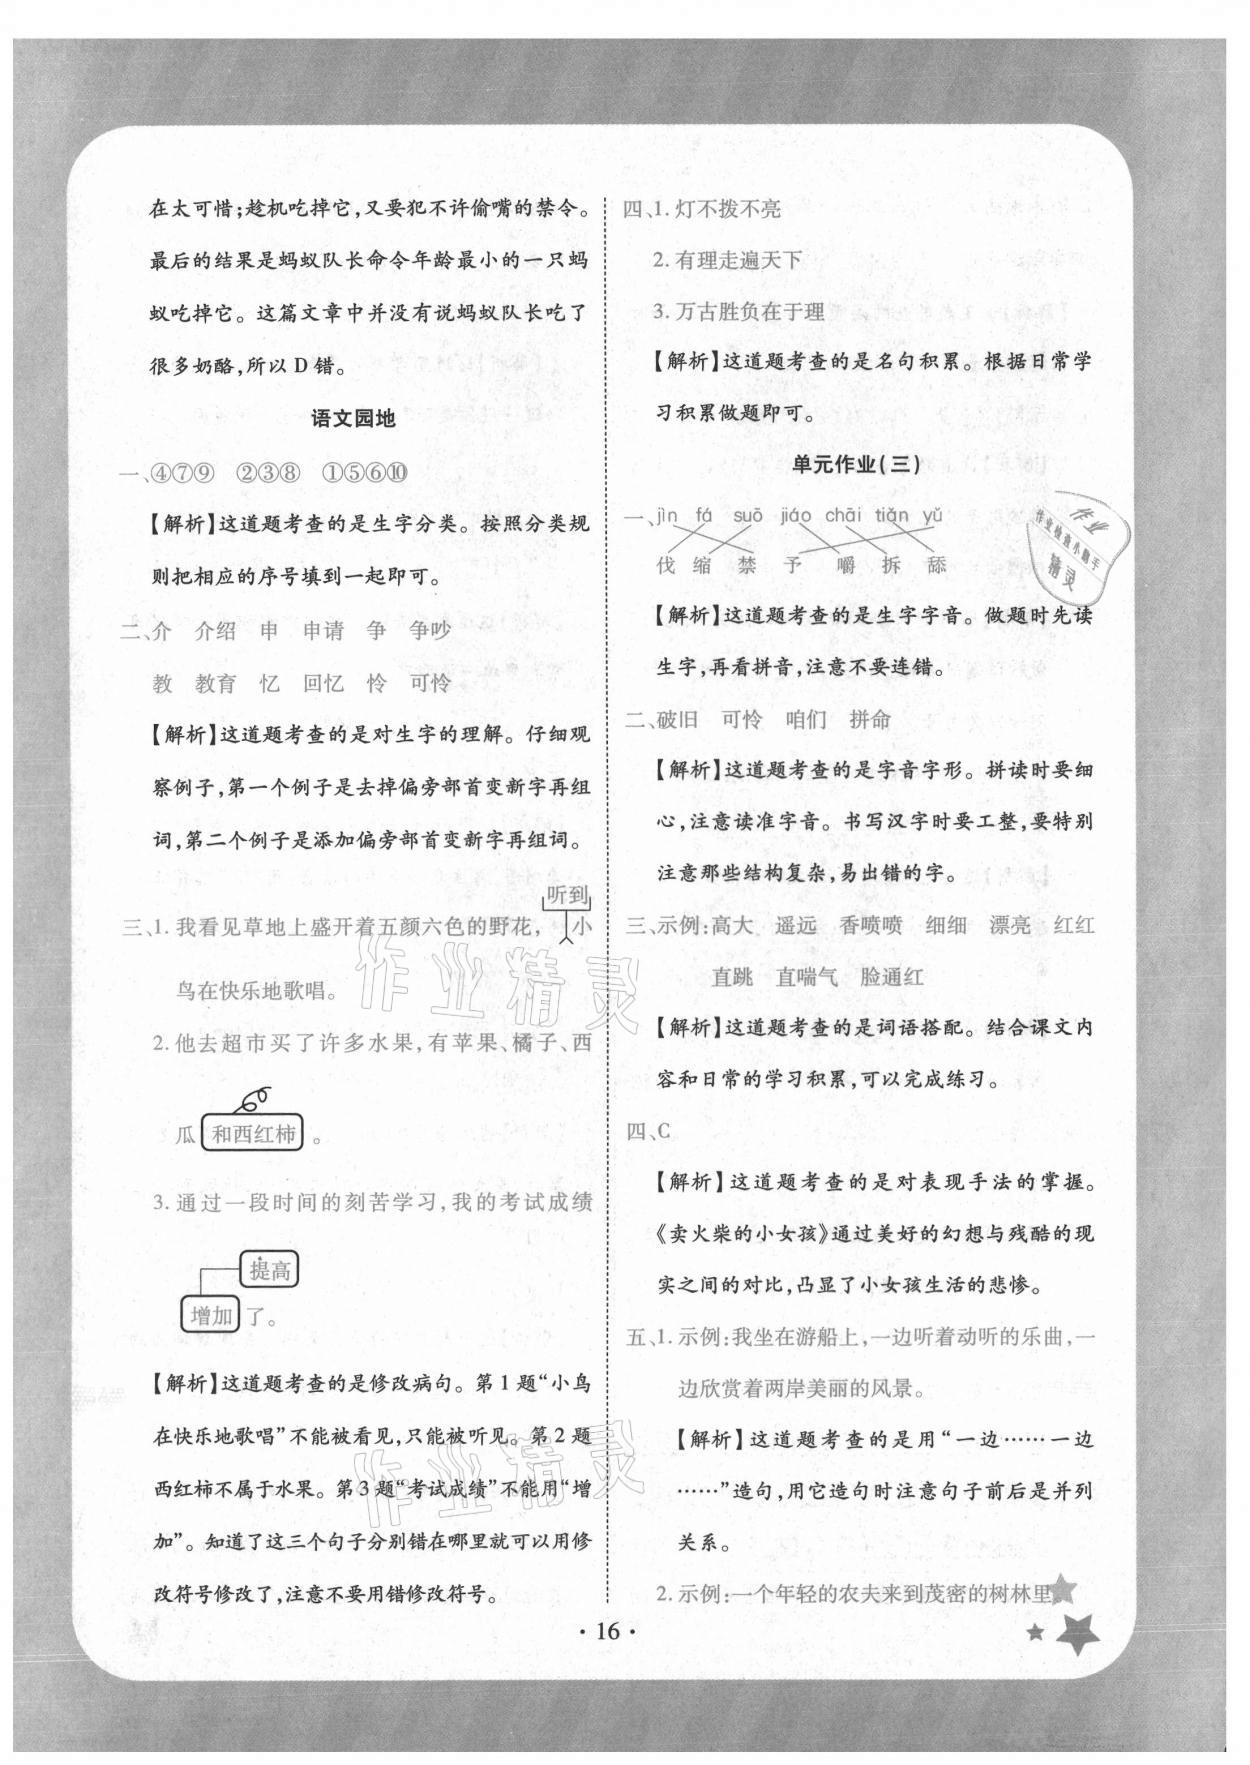 在太可惜;趁机吃掉它,又要犯不许偷嘴的禁令。
最后的结果是蚂蚁队长命令年龄最小的一只蚂
蚁吃掉它。这篇文章中并没有说蚂蚁队长吃了
很多奶酪,所以 D 错。
语文园地
一、④⑦⑨ ②③⑧ ①⑤⑥⑩
【解析】这道题考查的是生字分类。按照分类规
则把相应的序号填到一起即可。
二、介 介绍 申 申请 争 争吵
教 教育 忆 回忆 怜 可怜
【解析】这道题考查的是对生字的理解。仔细观
察例子,第一个例子是去掉偏旁部首变新字再组
词,第二个例子是添加偏旁部首变新字再组词。
听到
三、1. 我看见草地上盛开着五颜六色的野花, 小
鸟在快乐地歌唱。
2. 他去超市买了许多水果,有苹果、橘子、西
瓜 和西红柿 。
3. 通过一段时间的刻苦学习,我的考试成绩
提高
增加 了。
【解析】这道题考查的是修改病句。第 1 题“小鸟
在快乐地歌唱”不能被看见,只能被听见。第 2 题
西红柿不属于水果。第 3 题“考试成绩”不能用“增
加”。知道了这三个句子分别错在哪里就可以用修
改符号修改了,注意不要用错修改符号。
四、1. 灯不拨不亮
2. 有理走遍天下
3. 万古胜负在于理
【解析】这道题考查的是名句积累。根据日常学
习积累做题即可。
单元作业(三)
一、jìn fá suō jiáo chāi tiǎn yǔ
伐 缩 禁 予 嚼 拆 舔
【解析】这道题考查的是生字字音。做题时先读
生字,再看拼音,注意不要连错。
二、破旧 可怜 咱们 拼命
【解析】这道题考查的是字音字形。拼读时要细
心,注意读准字音。书写汉字时要工整,要特别
注意那些结构复杂,易出错的字。
三、示例:高大 遥远 香喷喷 细细 漂亮 红红
直跳 直喘气 脸通红
【解析】这道题考查的是词语搭配。结合课文内
容和日常的学习积累,可以完成练习。
四、C
【解析】这道题考查的是对表现手法的掌握。
《卖火柴的小女孩》通过美好的幻想与残酷的现
实之间的对比,凸显了小女孩生活的悲惨。
五、1. 示例:我坐在游船上,一边听着动听的乐曲,一
边欣赏着两岸美丽的风景。
【解析】这道题考查的是用“一边……一边
……”造句,用它造句时注意句子前后是并列
关系。
2. 示例:一个年轻的农夫来到茂密的树林里。
· 16 ·
作业精灵
作业精灵
作业
作业检查小助手
精灵